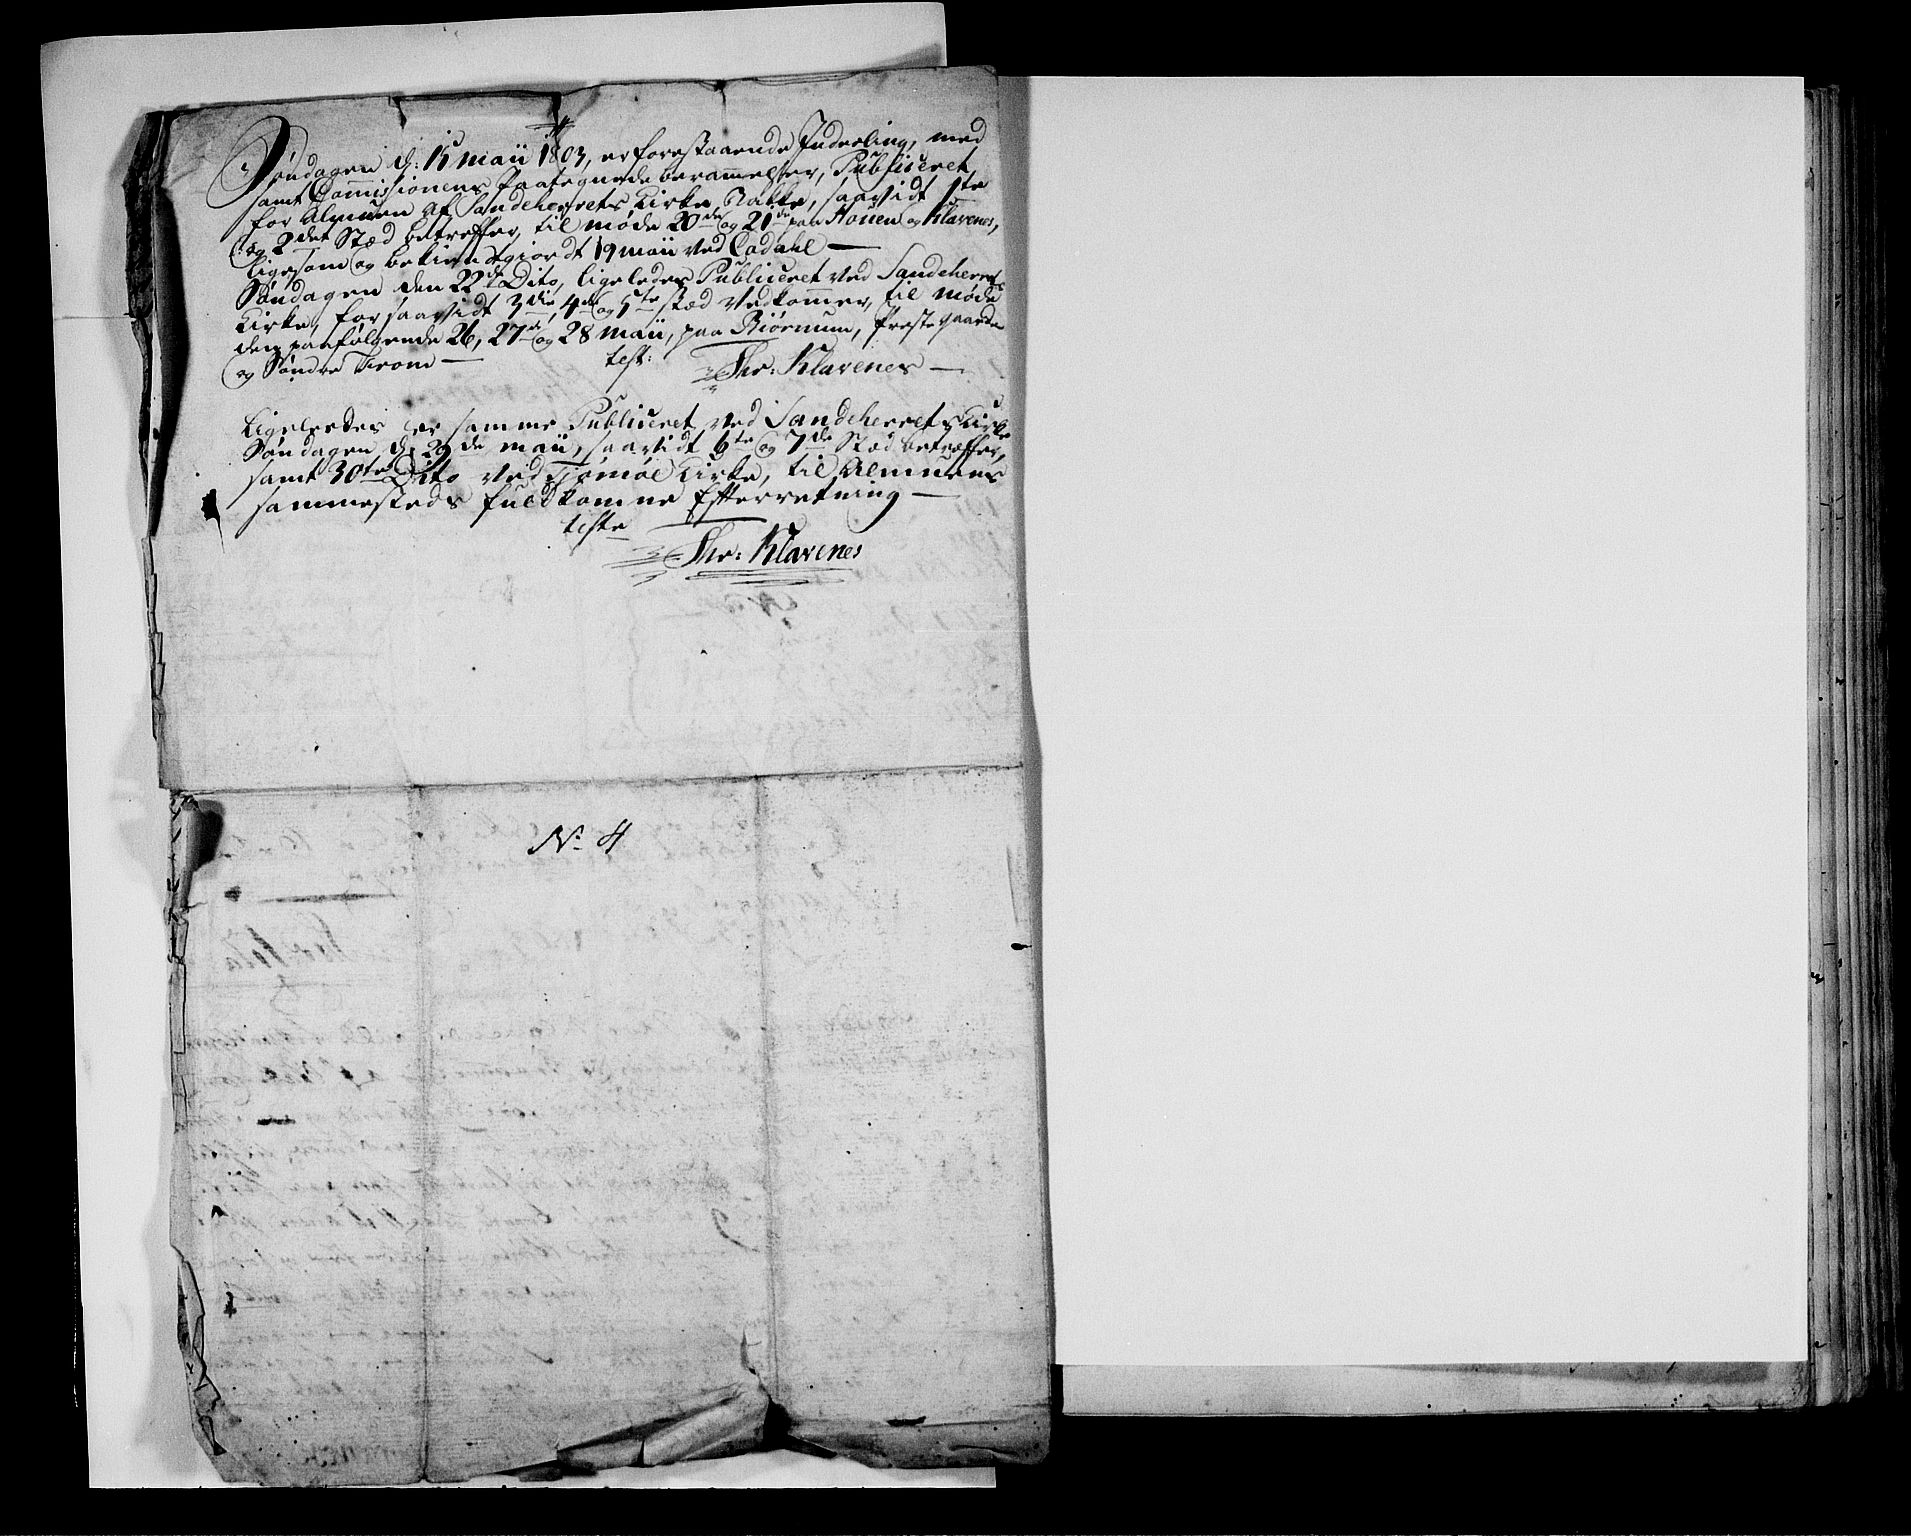 Søndagen d: 15 maii 1803, er forestaaende Inderling, med
samt Commissionens Paategnede berammelser, Publiceret,
for Almuen af Sandeherrets Kirke Bakke, saavidt 1ste
og 2det Stæd betreffer, til møde 20de og 21de paa Houen og Klavenes,
ligesom og bekiendtgiordt 19 maii ved Cadahl —
Søndagen den 22de Dito, ligeledes Publiceret ved Sandeherrets
Kirke, for saavidt 3die, 4de og 5te stæd vedkommer, til møde
den paafølgende 26, 27de og 28 maii, paa Biørnum, Præstegaarden
og Søndre Trom —
test:
Thr: Klavenes —
Ligeledes er samme Publiceret ved Sandeherrets Kirke
Søndagen d: 29de maii, saavidt 6te og 7de Stæd betræffer,
samt 30te Dito ved Tiømøe Kirke, til Almuens
sammesteds fuldkomne Efterretning —
teste
Thr: Klavenes
No. 4